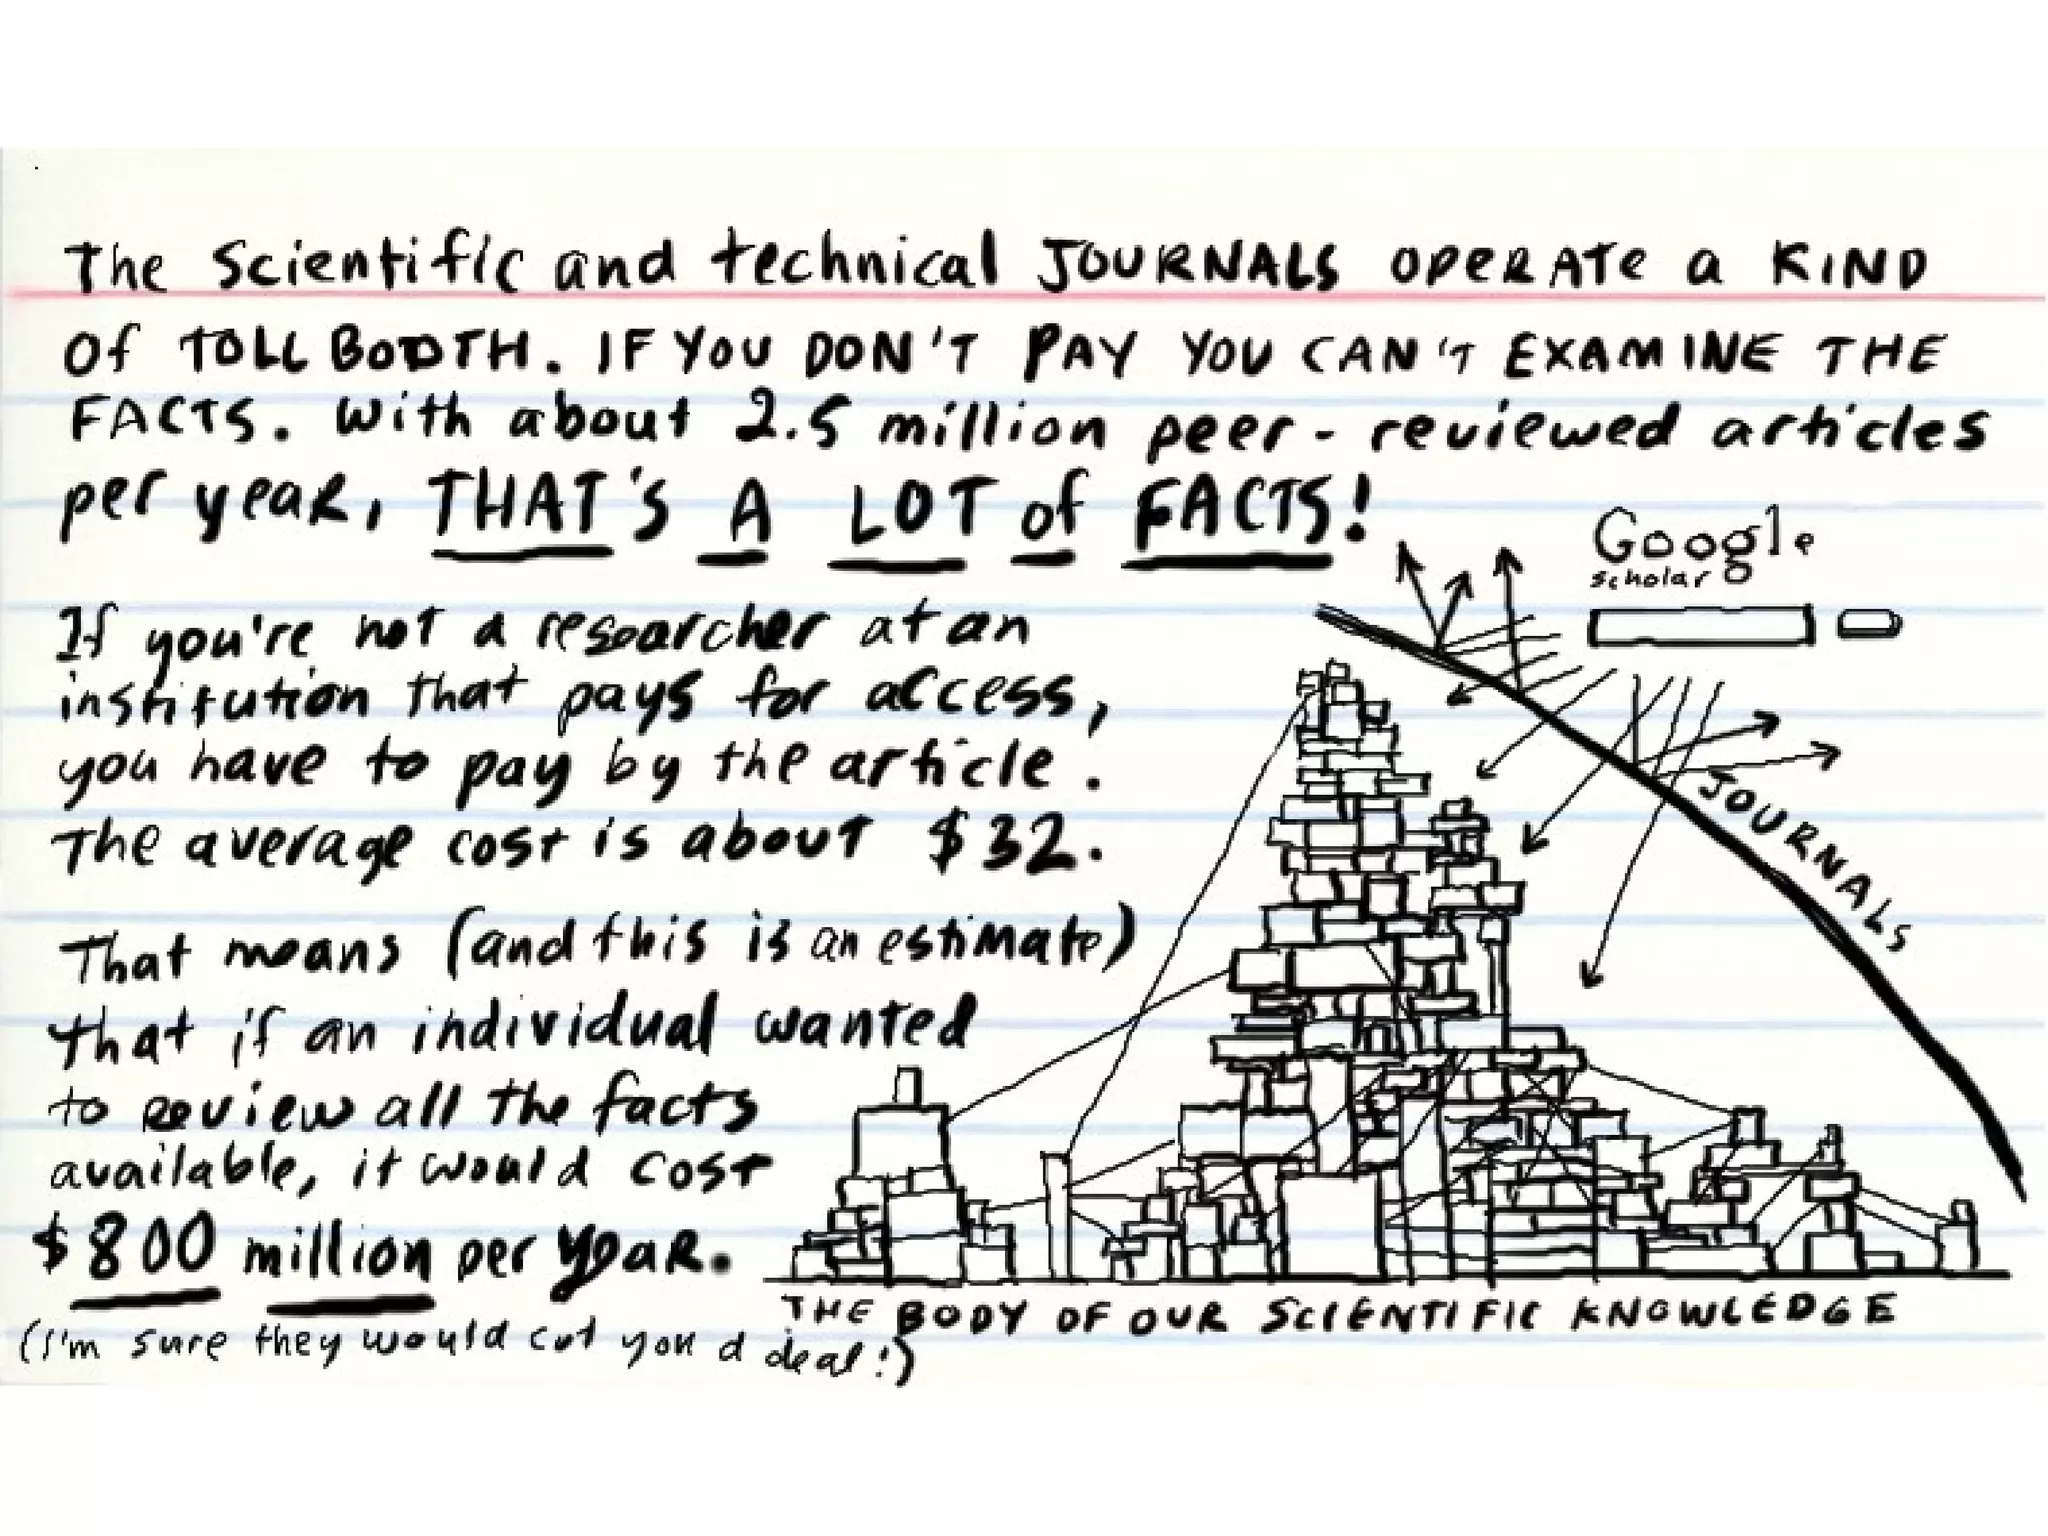 The scientific and technical JOURNALS OPERATE a KIND
Of TOLL BOOTH. IF YOU DON'T PAY YOU CAN'T EXAMINE THE
FACTS. With about 2.5 million peer-reviewed articles
per year, THAT'S A LOT of FACTS!
If you're not a researcher at an
institution that pays for access,
you have to pay by the article.
The average cost is about $32.
That means (and this is an estimate)
that if an individual wanted
to review all the facts
available, it would cost
$800 million per year.
(I'm sure they would cut you a deal!)
Google
scholar
JOURNALS
THE BODY OF OUR SCIENTIFIC KNOWLEDGE